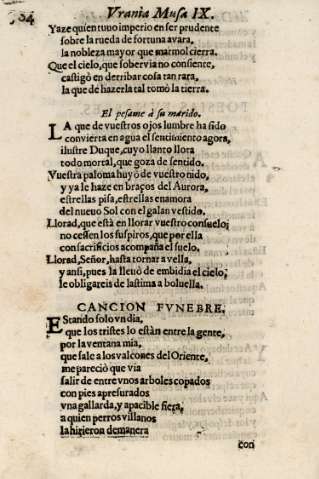 64 Vrania Musa IX.
Yaze quien tuuo imperio en ser prudente
sobre la rueda de fortuna auara,
la nobleza mayor que marmol cierra.
Que el cielo, que soberuia no consiente,
castigò en derribar cosa tan rara,
la que de hazerla tal tomò la tierra.
El pesame à su marido.
LA que de vuestros ojos lumbre ha sido
conuierta en agua el sentimiento agora,
ilustre Duque, cuyo llanto llora
todo mortal, que goza de sentido.
Vuestra paloma huyò de vuestro nido,
y ya le haze en braços del Aurora,
estrellas pisa, estrellas enamora
del nueuo Sol con el galan vestido.
Llorad, que està en llorar vuestro consuelo;
no cessen los suspiros, que por ella
con sacrificios acompaña el suelo.
Llorad, Señor, hasta tornar a vella,
y ansi, pues la lleuò de embidia el cielo,
le obligareis de lastima a boluella.
CANCION FVNEBRE.
EStando solo vn dia,
que los tristes lo estàn entre la gente,
por la ventana mia,
que sale a los valcones del Oriente,
me pareciò que via
salir de entre vnos arboles copados
con pies apresurados
vna gallarda, y apacible fiera,
a quien perros villanos
la hirieron de manera
con